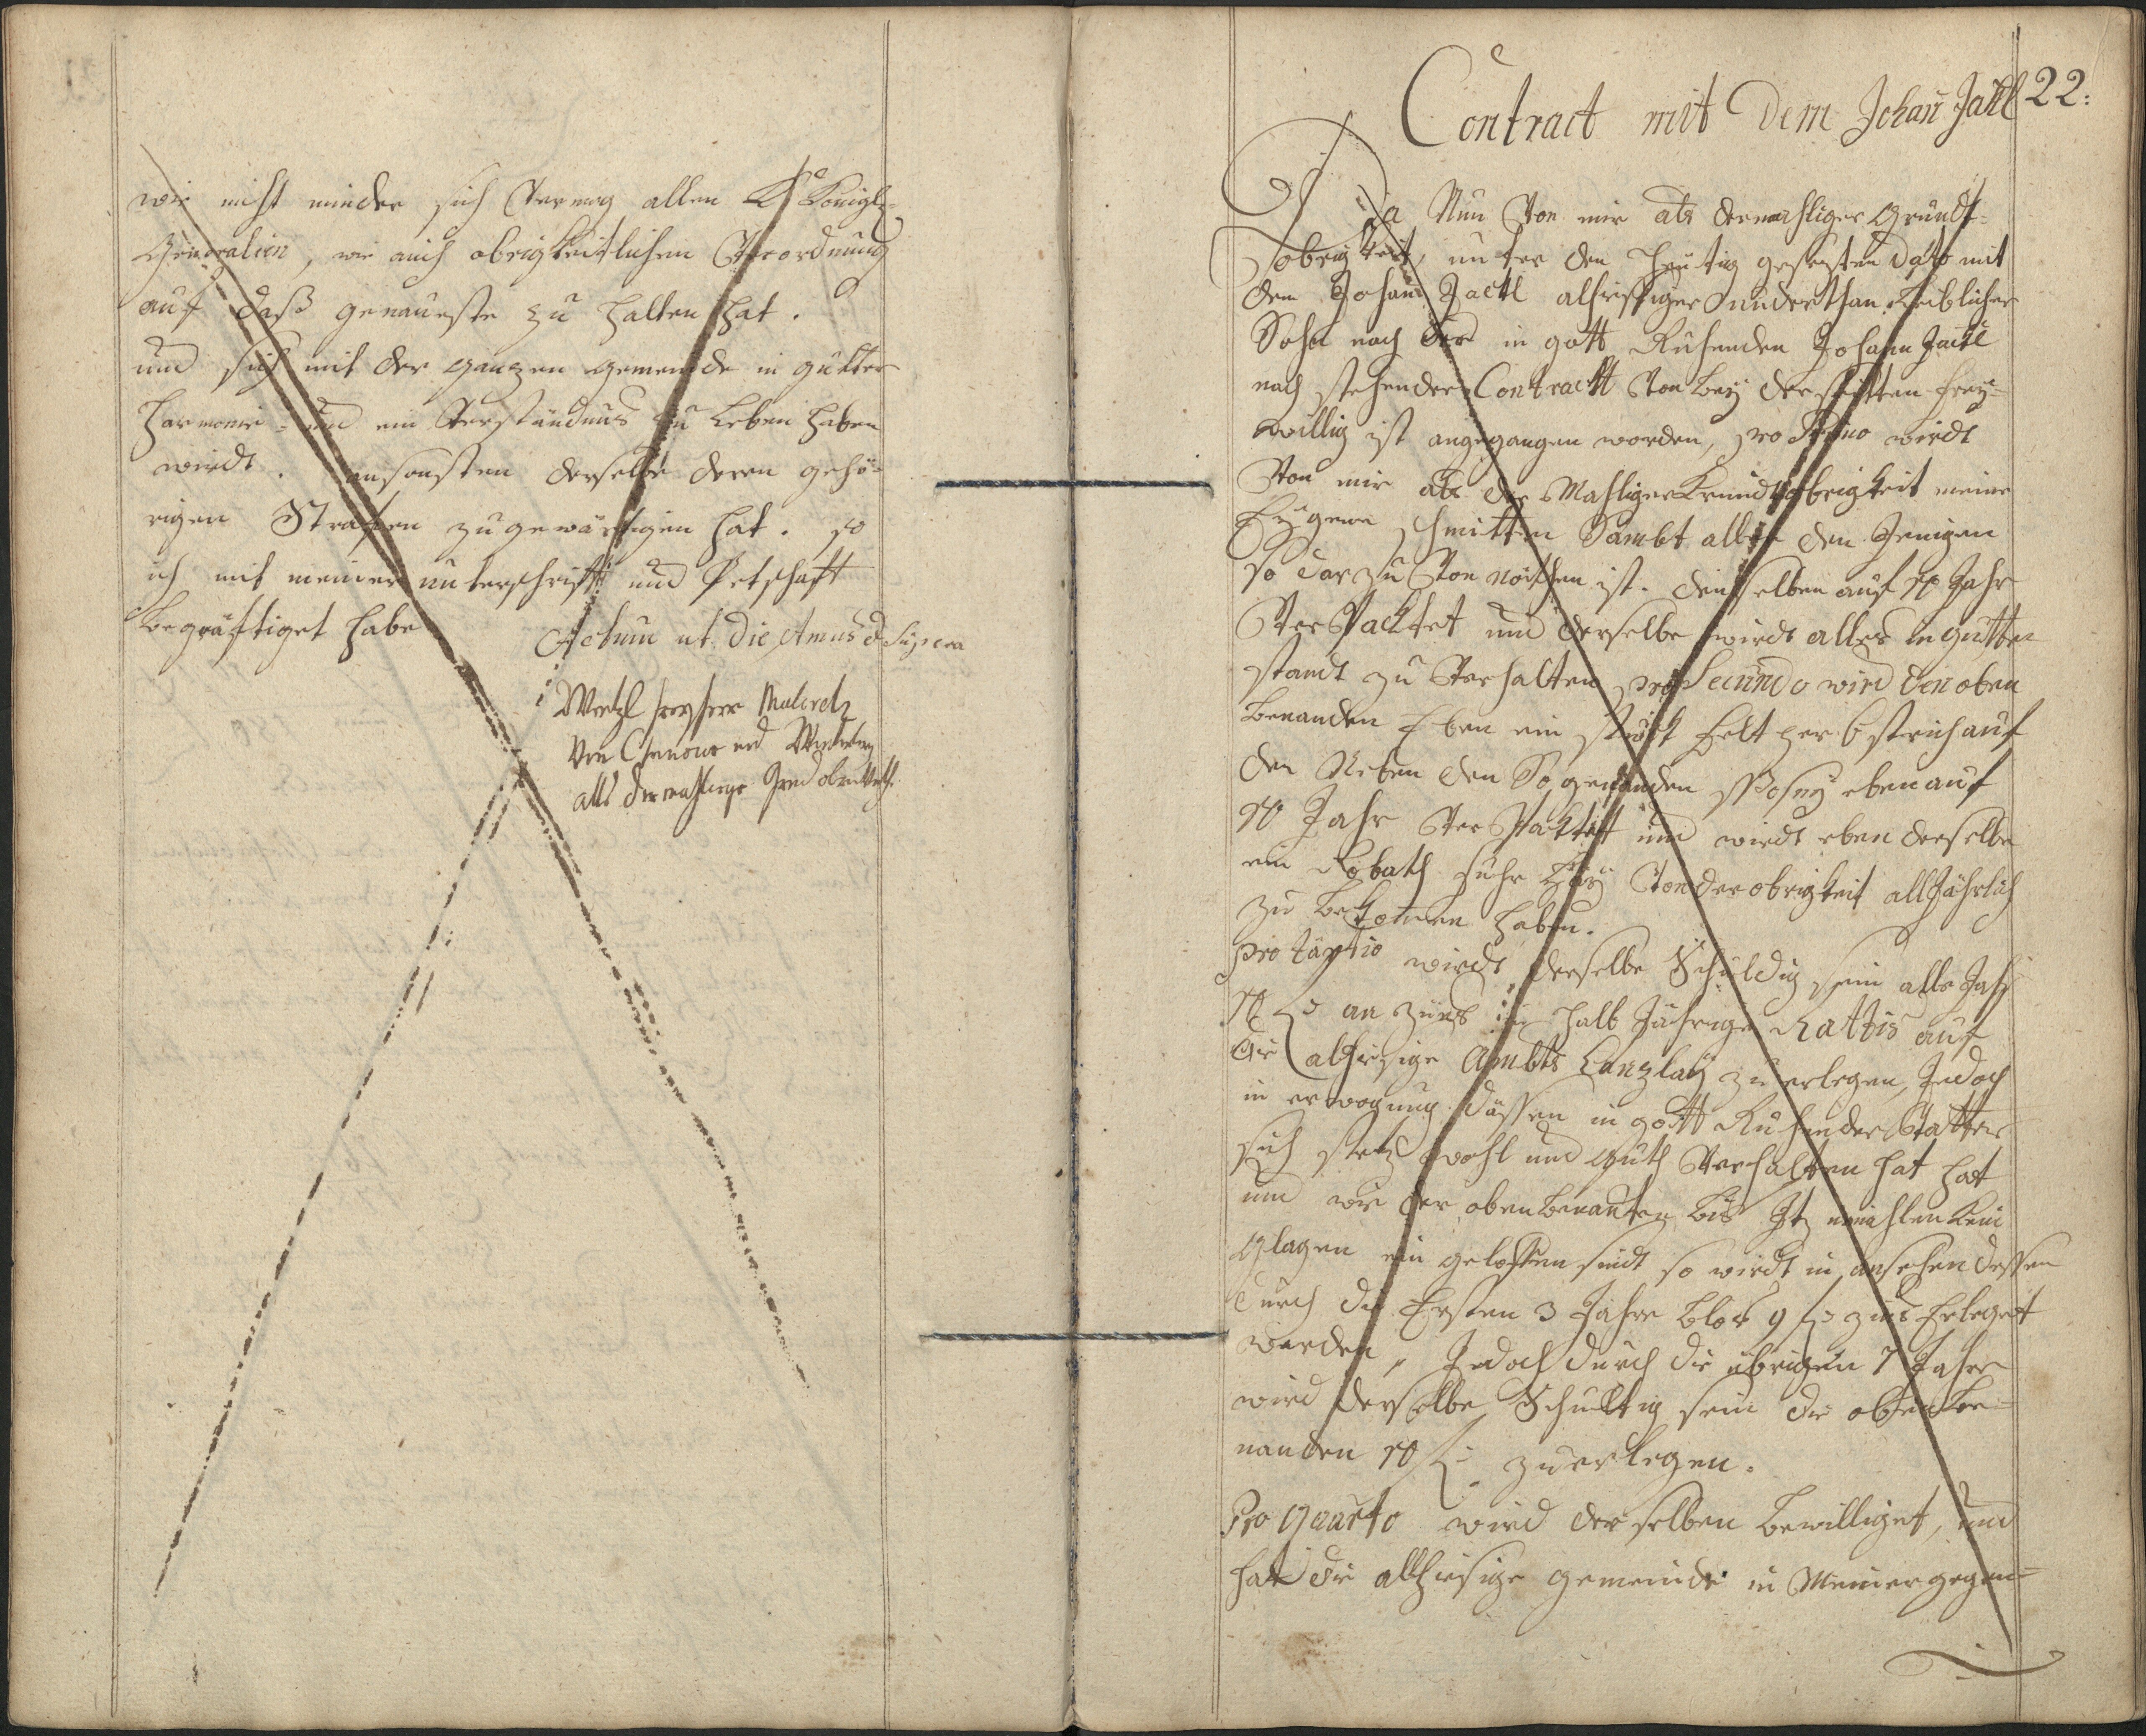 wie nicht minder sich Vermög allen K Königl-
Generalien, wie auch obrigkeitlichen Verordnung
auf daß genaueste zu halten hat.
und sich mit der ganzen gemeinde in gutter
Harmonie = und ein Verständnus zu leben haben
wirdt. ansonsten derselbe deren gehö-
rigen Straffen zu gewärtigen hat. so
ich mit meiner unterschrifft und Petschaft
begräftiget habe
Actum ut Die Annus d Supera
Wentzl freyherr
von und
alls dermahlige
Contract mit Dem Johañ Jackl 22:
Da Nun Von mir als dermahliger Grundt-
obrigkeit, unter den heutig gesezten Dato mit
dem Johann Jackl alhiesiger underthan Leiblicher
Sohn nach der in gott Ruhenden Johann Jackl
nach stehender Contractt Von bey derseitten frey-
willig ist angegangen worden, pro Primo wirdt
Von mir als der Mahliger Grundtobrigkeit meine
Eÿgene schmitten Sambt allen den Jenigen
so darzu Von nöthen ist. denselben auf 10 Jahr
Ver Packtet und derselbe wirdt alles in gutten
standt zu Verhalten pro Secundo wird den oben
benanden Eben ein stuck felt per 6 strich auf
den Neben den So genanden ebenauf
10 Jahr Ver Packtett und wirdt eben derselbe
ein Robath fuhr Heÿ Von der obrigkeit all Jährlich
zu bekomen haben.
pro tärtio wirdt derselbe Schuldig sein alle Jahr
10 f an zünß in halb Jährige Rattis auf
die alhiesige Ambts Canzlaÿ zu erlegen, Jedoch
in erwogung dässen in gott Ruhender Vatter
sich stetz wohl und guth Verhalten hat hat
und wie der obenbenanten bis Jtz niemahlen kein
glagen ein geloffen sindt so wirdt in ansehen dessen
durch die Ersten 3 Jahre blos 9 f zins Erleget
werden, Jedoch durch die übrigen 7 Jahre
wird derselbe Schultig sein die obenbe-
nanden 10 f zuerlegen.
Pro quarto wird der selben bewilliget, und
hat die allhiesige gemeinde in Meiner gegen-